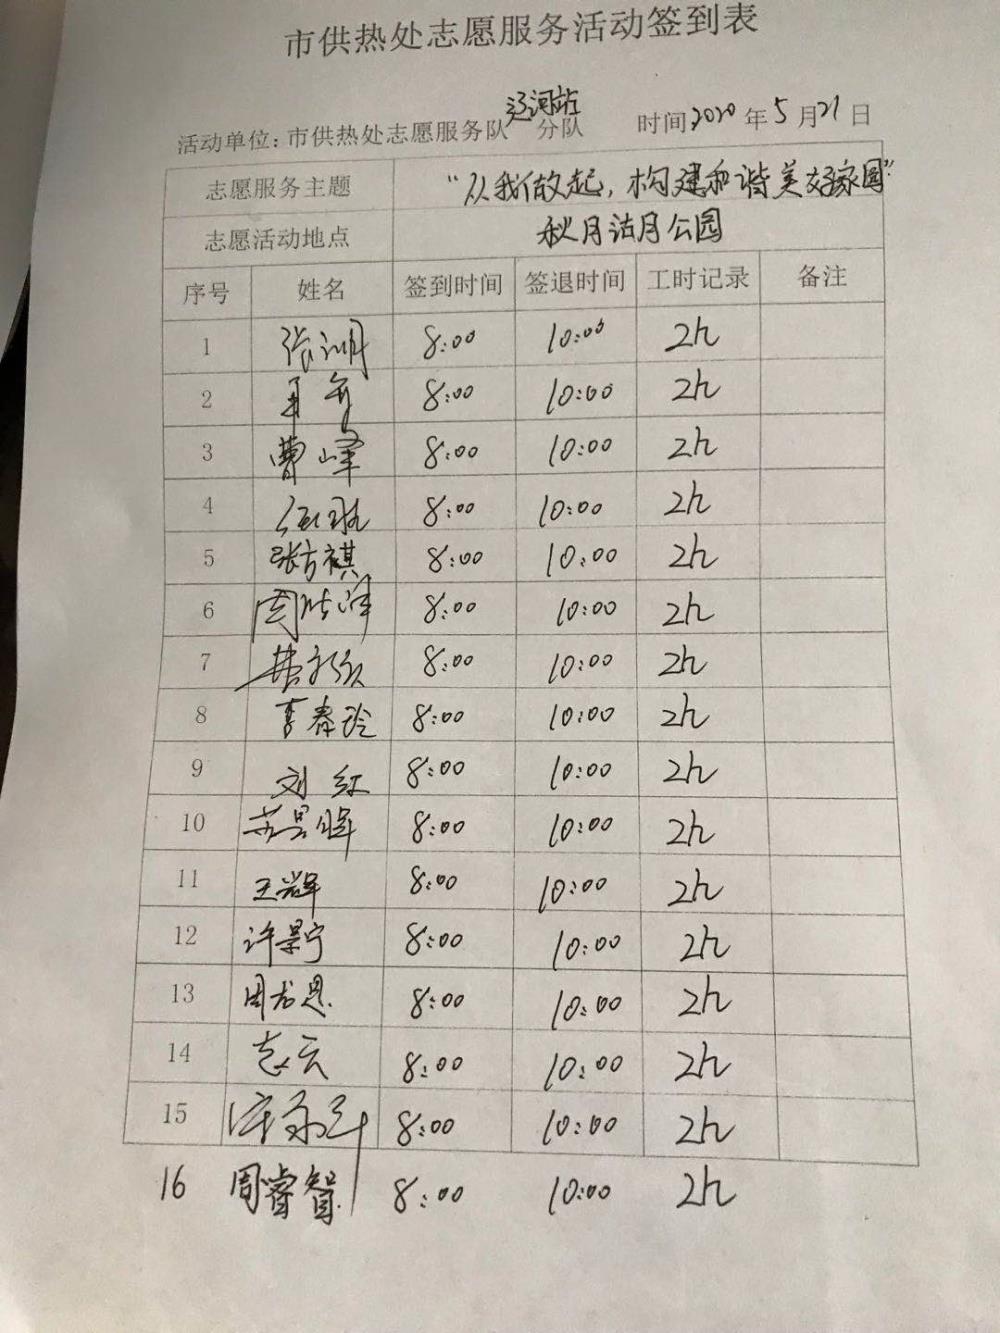 市供热处志愿服务活动签到表
活动单位:市供热处志愿服务队 辽河站 分队 时间2020年5月21日
志愿服务主题 "从我做起,构建和谐美好家园"
志愿活动地点 秋月沽月公园
序号 姓名 签到时间 签退时间 工时记录 备注
1 张 8:00 10:00 2h
2 8:00 10:00 2h
3 曹峰 8:00 10:00 2h
4 8:00 10:00 2h
5 张方祺 8:00 10:00 2h
6 周 8:00 10:00 2h
7 8:00 10:00 2h
8 李春玲 8:00 10:00 2h
9 刘红 8:00 10:00 2h
10 8:00 10:00 2h
11 王辉 8:00 10:00 2h
12 许景宁 8:00 10:00 2h
13 周龙恩 8:00 10:00 2h
14 8:00 10:00 2h
15 8:00 10:00 2h
16 周睿智 8:00 10:00 2h